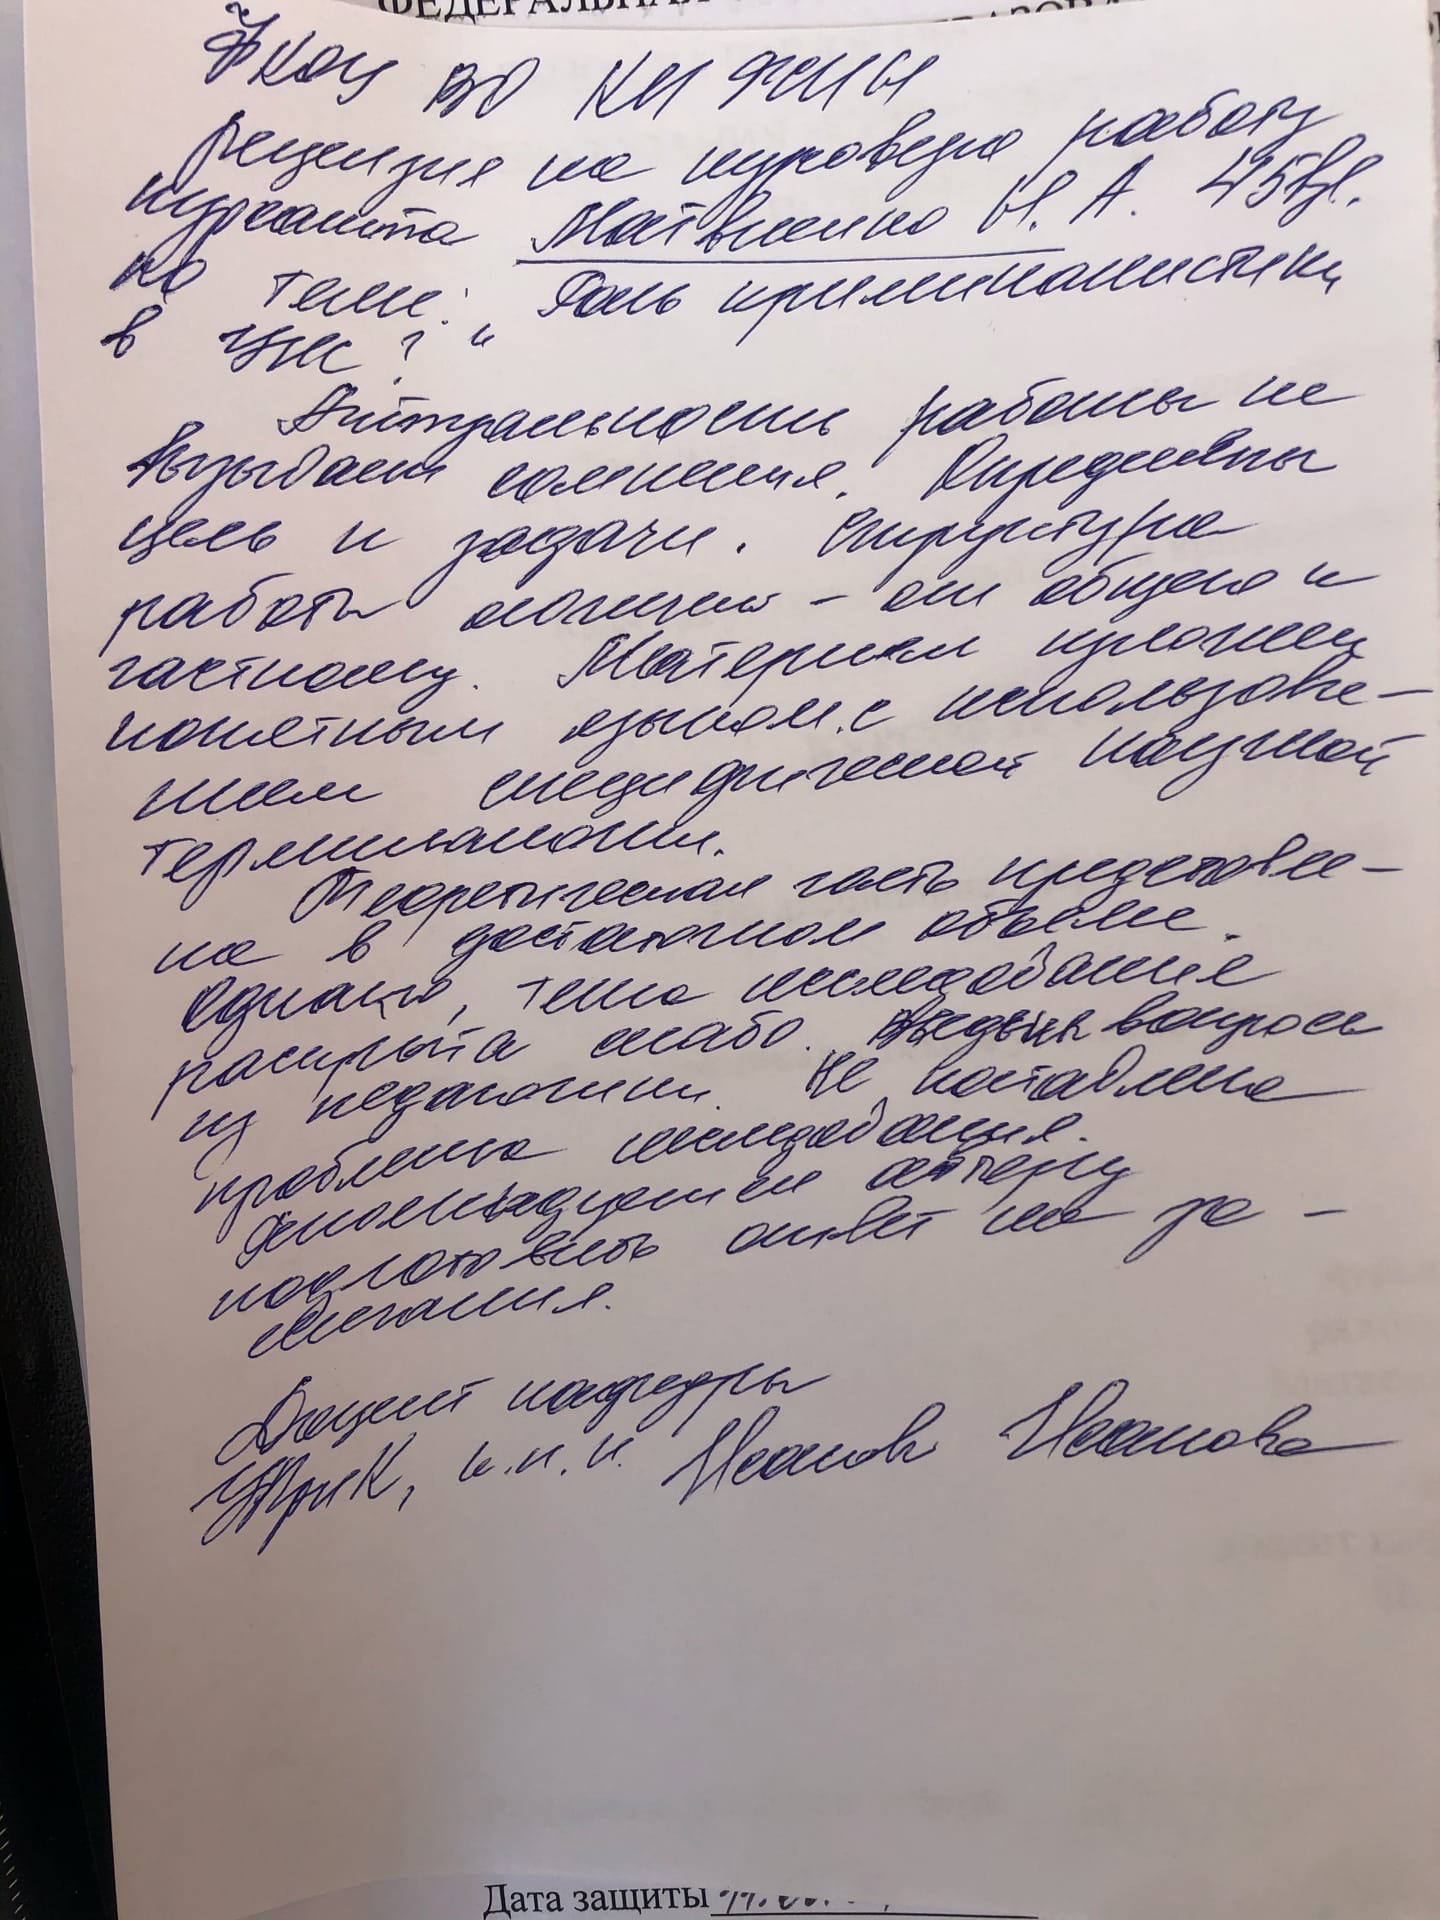 ФЕДЕРАЛЬНАЯ
ФКОУ ВО КИ ФСИН
Рецензия на курсовую работу
курсанта Матвиенко И. А. 45вз.
по теме: „Роль криминалистики
в УИС?“
Актуальность работы не
вызывает сомнения. Определены
цель и задачи. Структура
работы логична – от общего к
частному. Материал изложен
понятным языком с использова-
нием специфической научной
терминологии.
Теоретическая часть представле-
на в достаточном объеме.
Однако, тема исследования
раскрыта слабо. Введены вопросы
из педагогики. Не поставлена
проблема исследования.
Рекомендуется автору
подготовить ответ на за-
мечания.
Доцент кафедры
УПриК, к.п.н. Иванова
Дата защиты